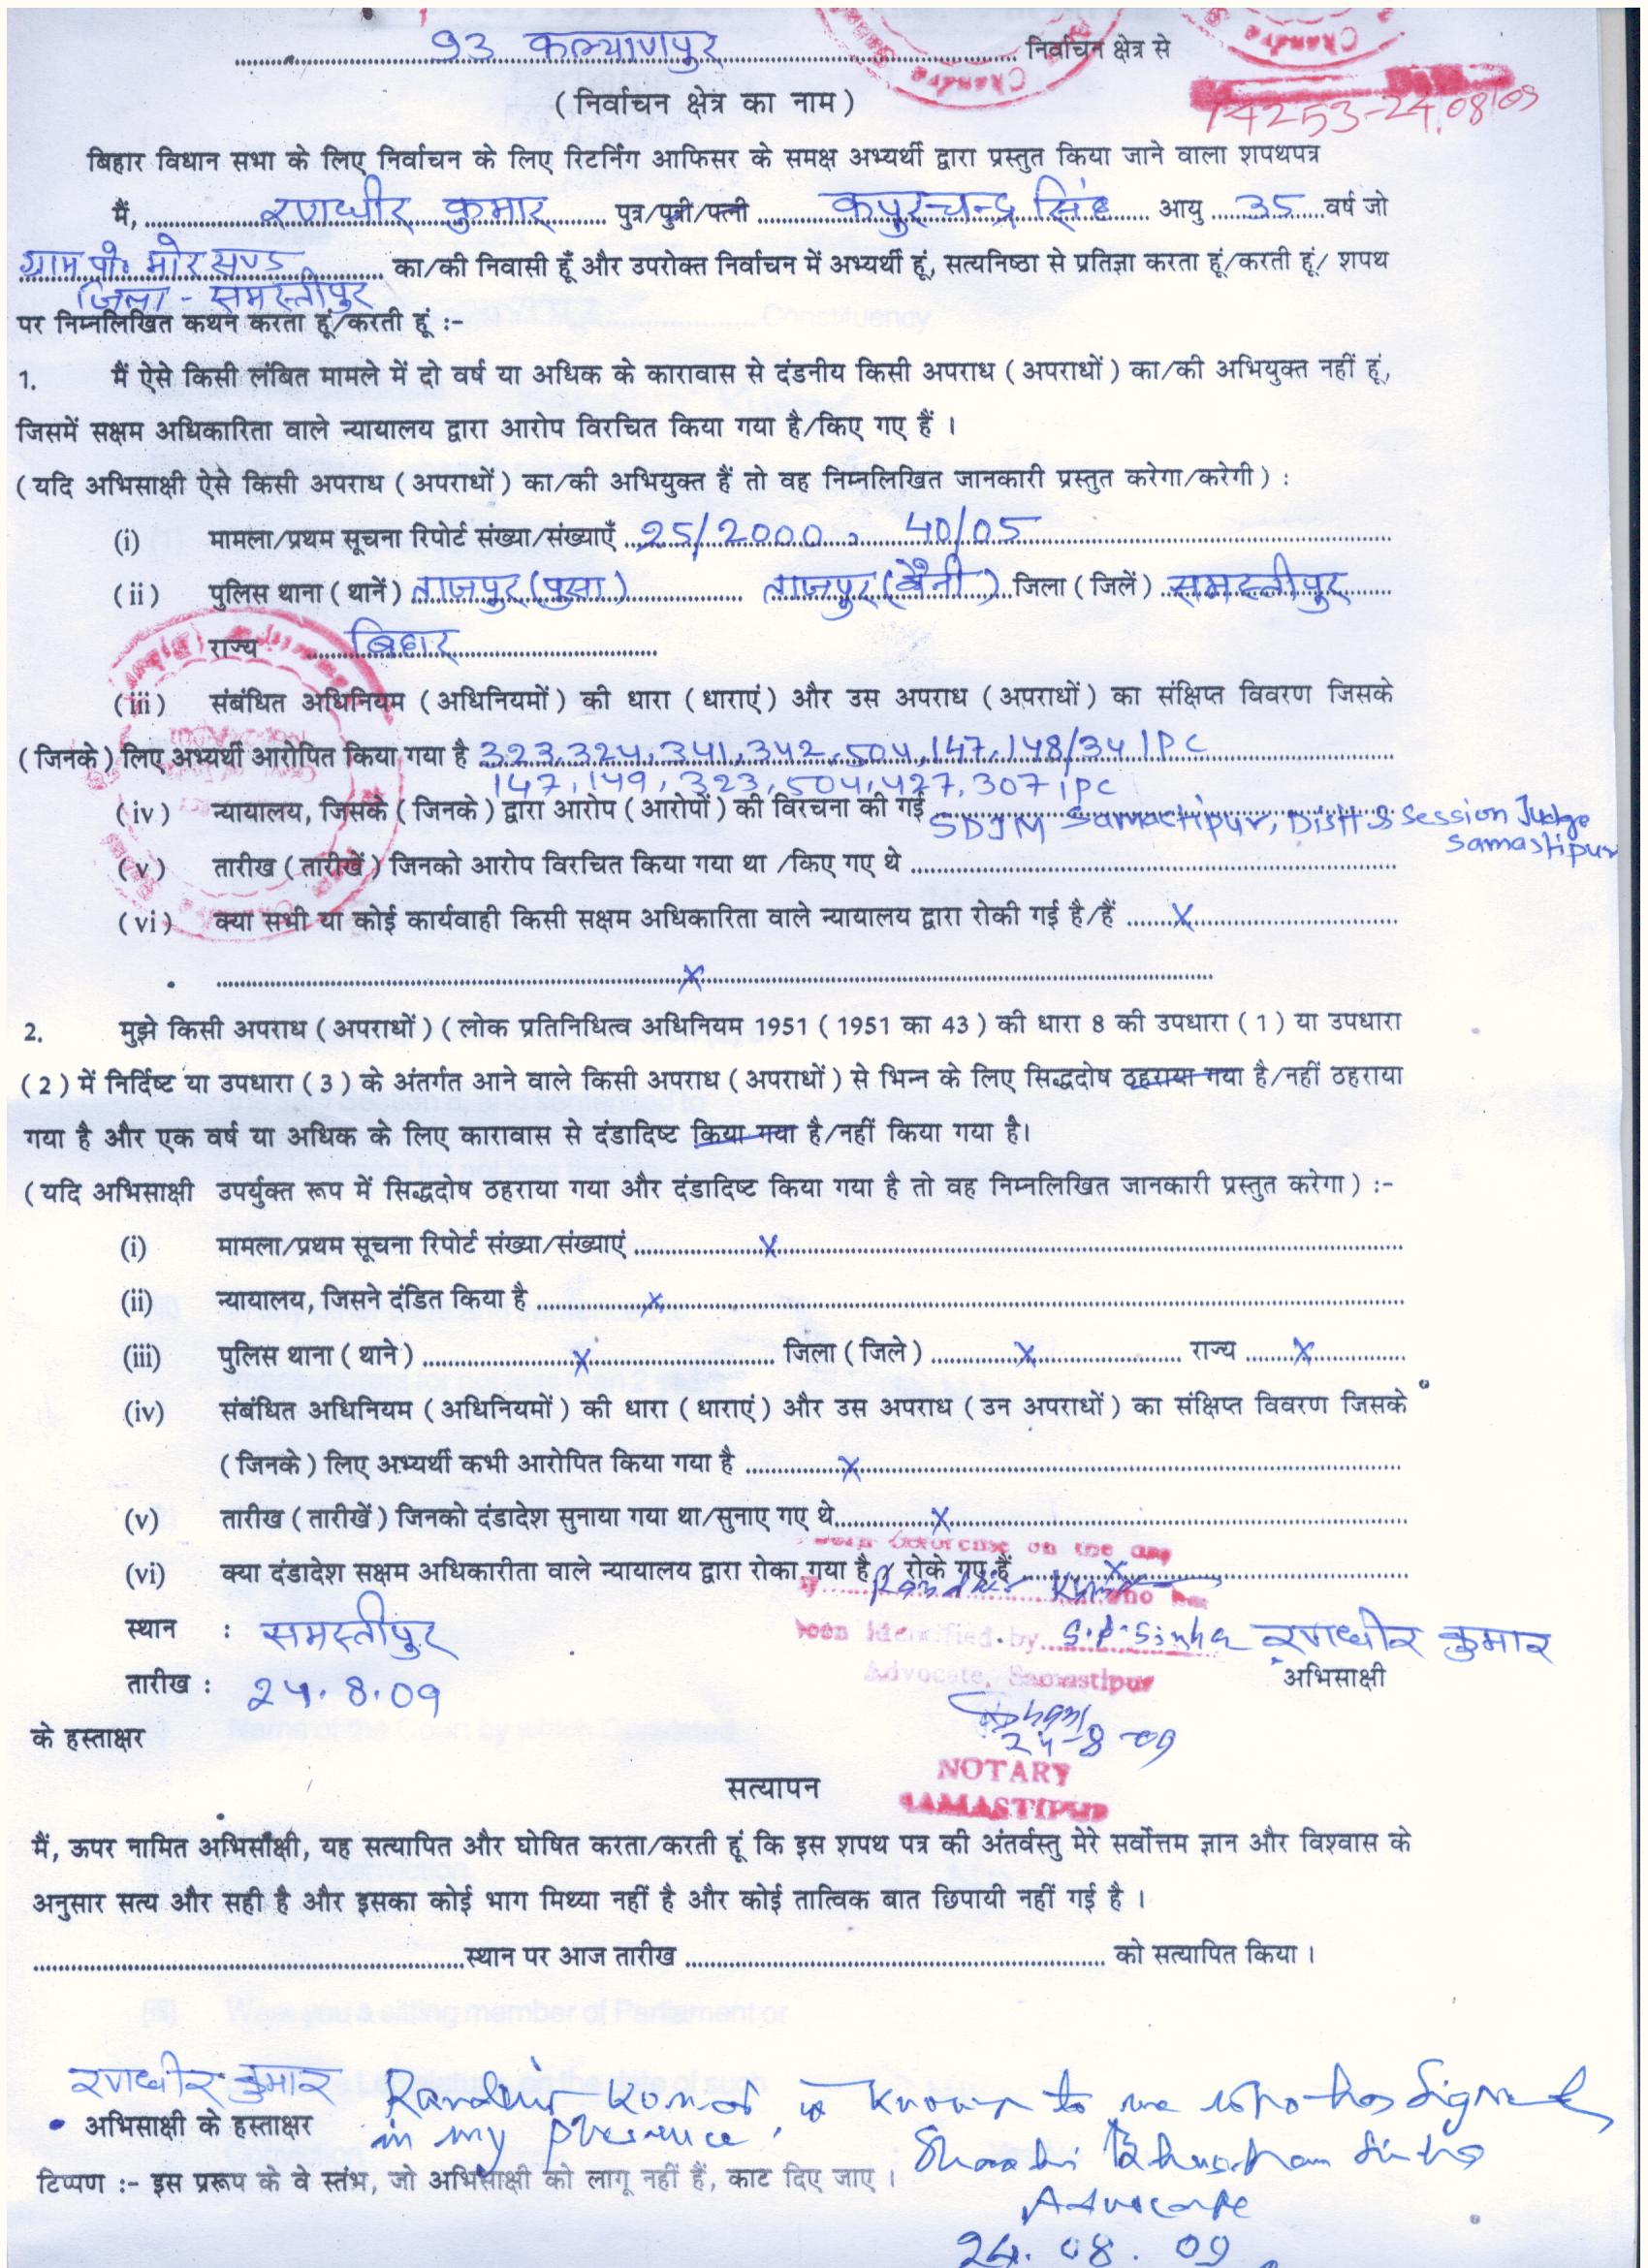 93 कल्याणपुर निर्वाचन क्षेत्र से
(निर्वाचन क्षेत्र का नाम)
14253-24.08.09
बिहार विधान सभा के लिए निर्वाचन के लिए रिटर्निंग आफिसर के समक्ष अभ्यर्थी द्वारा प्रस्तुत किया जाने वाला शपथपत्र
मैं, रणधीर कुमार पुत्र/पुत्री/पत्नी कपुरचन्द्र सिंह आयु 35 वर्ष जो
ग्राम पो० मोरसण्ड का/की निवासी हूँ और उपरोक्त निर्वाचन में अभ्यर्थी हूं, सत्यनिष्ठा से प्रतिज्ञा करता हूं/करती हूं/ शपथ
जिला - समस्तीपुर
पर निम्नलिखित कथन करता हूं/करती हूं :-
1. मैं ऐसे किसी लंबित मामले में दो वर्ष या अधिक के कारावास से दंडनीय किसी अपराध (अपराधों) का/की अभियुक्त नहीं हूं,
जिसमें सक्षम अधिकारिता वाले न्यायालय द्वारा आरोप विरचित किया गया है/किए गए हैं ।
(यदि अभिसाक्षी ऐसे किसी अपराध (अपराधों) का/की अभियुक्त हैं तो वह निम्नलिखित जानकारी प्रस्तुत करेगा/करेगी) :
(i) मामला/प्रथम सूचना रिपोर्ट संख्या/संख्याएँ 25/2000, 40/05
(ii) पुलिस थाना (थानें) ताजपुर (पुसा) ताजपुर (बैनी) जिला (जिलें) समस्तीपुर
राज्य बिहार
(iii) संबंधित अधिनियम (अधिनियमों) की धारा (धाराएं) और उस अपराध (अपराधों) का संक्षिप्त विवरण जिसके
(जिनके) लिए अभ्यर्थी आरोपित किया गया है 323, 324, 341, 342, 504, 147, 148/34 IPC
147, 149, 323, 504, 427, 307 IPC
(iv) न्यायालय, जिसके (जिनके) द्वारा आरोप (आरोपों) की विरचना की गई SDJM Samastipur, Distt & Session Judge
Samastipur
(v) तारीख (तारीखें) जिनको आरोप विरचित किया गया था /किए गए थे
(vi) क्या सभी या कोई कार्यवाही किसी सक्षम अधिकारिता वाले न्यायालय द्वारा रोकी गई है/हैं X
X
2. मुझे किसी अपराध (अपराधों) (लोक प्रतिनिधित्व अधिनियम 1951 (1951 का 43) की धारा 8 की उपधारा (1) या उपधारा
(2) में निर्दिष्ट या उपधारा (3) के अंतर्गत आने वाले किसी अपराध (अपराधों) से भिन्न के लिए सिद्धदोष ठहराया गया है/नहीं ठहराया
गया है और एक वर्ष या अधिक के लिए कारावास से दंडादिष्ट किया गया है/नहीं किया गया है।
(यदि अभिसाक्षी उपर्युक्त रूप में सिद्धदोष ठहराया गया और दंडादिष्ट किया गया है तो वह निम्नलिखित जानकारी प्रस्तुत करेगा) :-
(i) मामला/प्रथम सूचना रिपोर्ट संख्या/संख्याएं X
(ii) न्यायालय, जिसने दंडित किया है X
(iii) पुलिस थाना (थाने) X जिला (जिले) X राज्य X
(iv) संबंधित अधिनियम (अधिनियमों) की धारा (धाराएं) और उस अपराध (उन अपराधों) का संक्षिप्त विवरण जिसके
(जिनके) लिए अभ्यर्थी कभी आरोपित किया गया है X
(v) तारीख (तारीखें) जिनको दंडादेश सुनाया गया था/सुनाए गए थे X
on the
(vi) क्या दंडादेश सक्षम अधिकारीता वाले न्यायालय द्वारा रोका गया है / रोके गए हैं X
Randhir Kumar who has
स्थान : समस्तीपुर been identified by S.P. Sinha रणधीर कुमार
Advocate, Samastipur अभिसाक्षी
तारीख : 24.8.09
24-8-09
के हस्ताक्षर
NOTARY
SAMASTIPUR
सत्यापन
मैं, ऊपर नामित अभिसाक्षी, यह सत्यापित और घोषित करता/करती हूं कि इस शपथ पत्र की अंतर्वस्तु मेरे सर्वोत्तम ज्ञान और विश्वास के
अनुसार सत्य और सही है और इसका कोई भाग मिथ्या नहीं है और कोई तात्विक बात छिपायी नहीं गई है ।
स्थान पर आज तारीख को सत्यापित किया ।
रणधीर कुमार Randhir Kumar is known to me who has signed
अभिसाक्षी के हस्ताक्षर in my presence.
Shashi Bhushan Sinha
टिप्पण :- इस प्ररूप के वे स्तंभ, जो अभिसाक्षी को लागू नहीं हैं, काट दिए जाए ।
Advocate
24.08.09